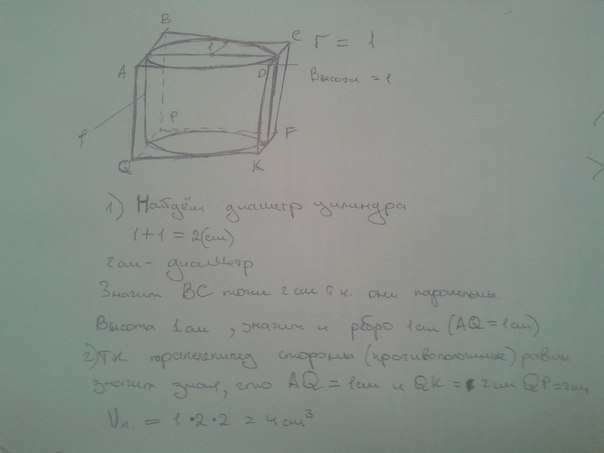 B
C
r = 1
1
A
D
Высота = 1
P
F
1
Q
K
1) Найдём диаметр цилиндра
1+1 = 2(см)
2см - диаметр
Значит BC тоже 2см т.к. они параллельны
Высота 1см, значит и ребро 1см (AQ = 1см)
2) Тк параллелепипед стороны (противоположные) равны
значит знаем, что AQ = 1см и QK = 2см QP = 2см
Vп. = 1·2·2 = 4см³